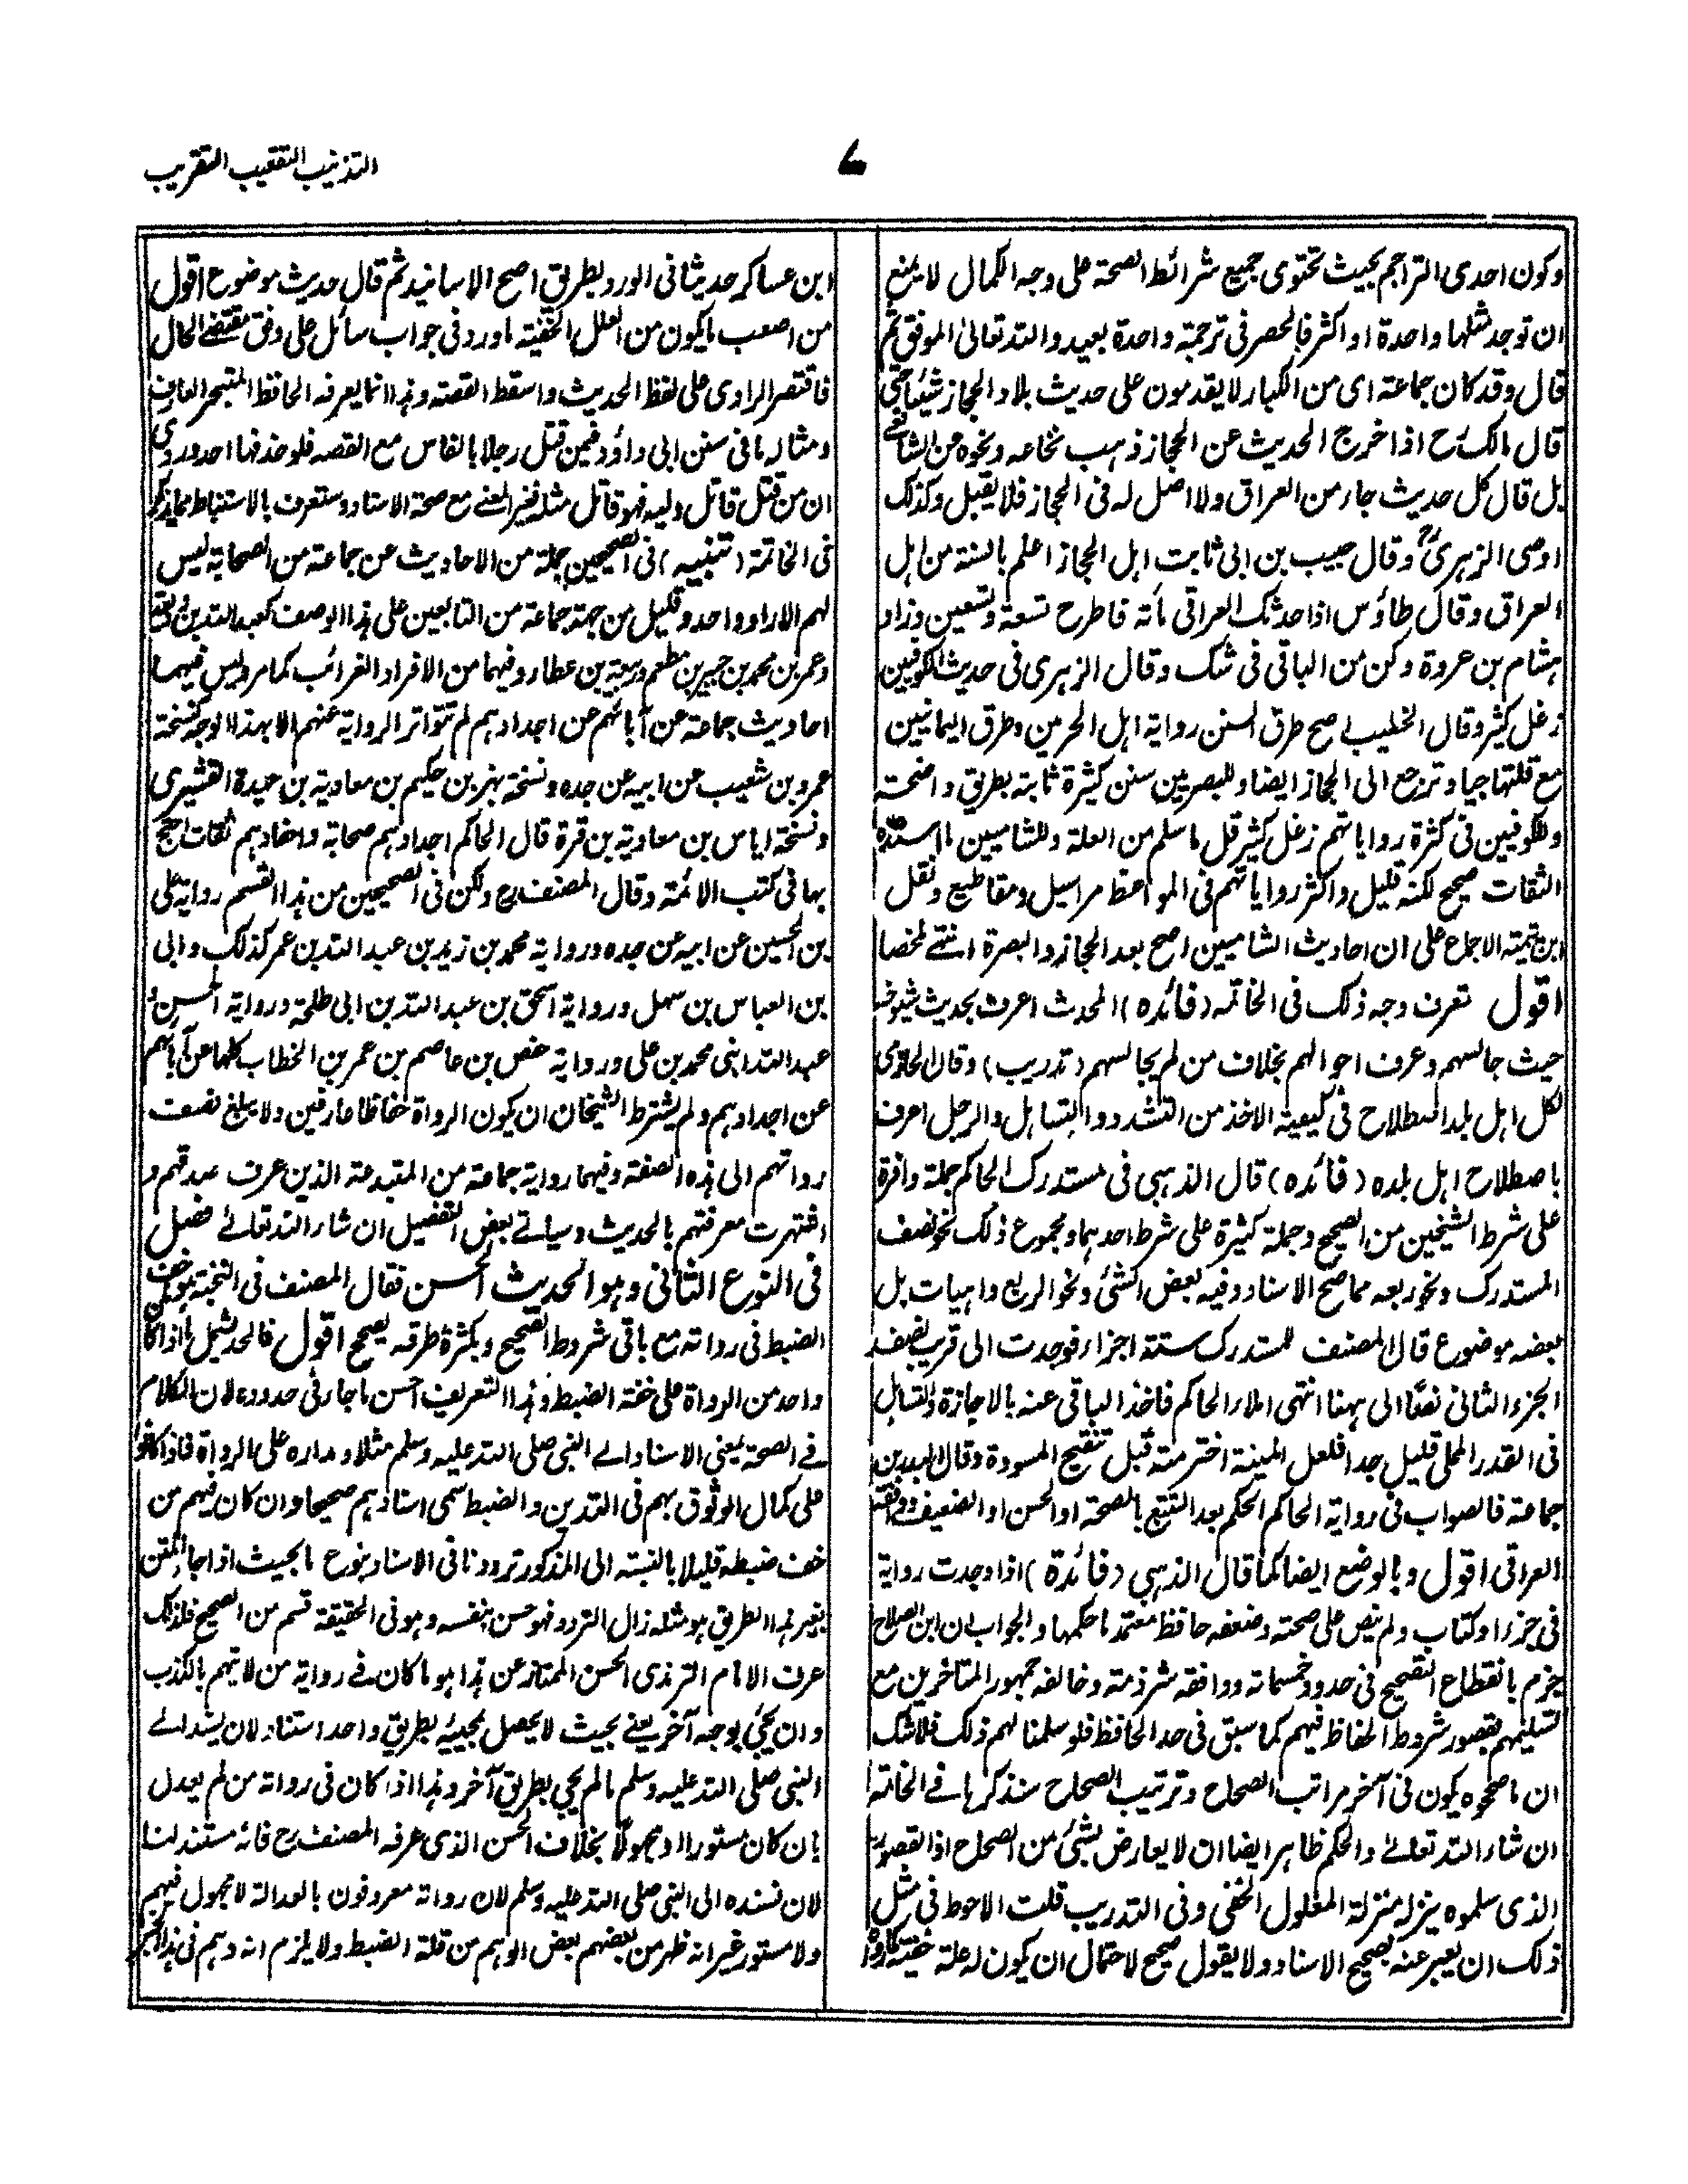 التذنيب التعقيب التقريب
٧
وكون احدى التراجم بحيث تحتوى جميع شرائط الصحة على وجه الكمال لا يمنع
ان توجد مثلها واحدة او اكثر فالحصر فى ترجمة واحدة بعيد والله تعالى الموفق ثم
قال وقد كان جماعة اى من الكبار لا يقدمون على حديث بلاد الحجاز شيئا حتى
قال مالك رح اذا خرج الحديث عن الحجاز ذهب نخاعه ونحوه عن الشافعى
بل قال كل حديث جاء من العراق ولا اصل له فى الحجاز فلا يقبل وكذلك
اوصى الزهرى رح وقال حبيب بن ابى ثابت اهل الحجاز اعلم بالسنة من اهل
العراق وقال طاؤس اذا حدثك العراقى مأته فاطرح تسعة وتسعين وزاد
هشام بن عروة وكن من الباقى فى شك وقال الزهرى فى حديث الكوفيين
زغل كثير وقال الخطيب اصح طرق السنن رواية اهل الحرمين وطرق اليمانيين
مع قلتها جياد ترجع الى الحجاز ايضا وللبصريين سنن كثيرة ثابتة بطريق واضحة
وللكوفيين فى كثرة رواياتهم زغل كثير قل ما سلم من العلة وللشاميين ما اسنده
الثقات صحيح لكنه قليل واكثر رواياتهم فى المواعظ مراسيل ومقاطيع ونقل
ابن تيمية الاجماع على ان احاديث الشاميين اصح بعد الحجاز والبصرة انتهى ملخصا
اقول تعرف وجه ذلك فى الخاتمه (فائده) المحدث اعرف بحديث شيوخه
حيث جالسهم وعرف احوالهم بخلاف من لم يجالسهم (تدريب) وقال الحاوى
لكل اهل بلد اصطلاح فى كيفية الاخذ من التشدد والتساهل والرجل اعرف
باصطلاح اهل بلده (فائده) قال الذهبى فى مستدرك الحاكم جملة وافرة
على شرط الشيخين من الصحيح وجملة كثيرة على شرط احدهما ومجموع ذلك نحو نصف
المستدرك ونحو ربعه مما صح الاسناد وفيه بعض الشئ ونحو الربع واهيات بل
بعضه موضوع قال المصنف للمستدرك ستة اجزاء فوجدت الى قريب نصف
الجزء الثانى نصا الى ههنا انتهى املاء الحاكم فاخذ الباقى عنه بالاجازة والتساهل
فى القدر المملى قليل جدا فلعل المنية اخترمته قبل تنقيح المسودة وقال البدر بن
جماعة فالصواب فى رواية الحاكم الحكم بعد التتبع بالصحة او الحسن او الضعيف ووافقه
العراقى اقول وبالوضع ايضا كما قال الذهبى (فائدة) اذا وجدت رواية
فى جزء او كتاب ولم ينص على صحته وضعفه حافظ معتمد ما حكمها والجواب ان ابن الصلاح
جزم بانقطاع التصحيح فى حدود خمسمائة ووافقه شرذمة وخالفه جمهور المتاخرين مع
تسليمهم بقصور شروط الحفاظ فيهم كما سبق فى حد الحافظ فلو سلمنا لهم ذلك فلا شك
ان ما صححوه يكون فى آخر مراتب الصحاح وترتيب الصحاح سنذكرها فى الخاتمه
ان شاء الله تعالى والحكم ظاهر ايضا ان لا يعارض بشئ من الصحاح اذ القصور
الذى سلموه ينزله منزلة المعلول الخفى وفى التدريب قلت الاحوط فى مثل
ذلك ان يعبر عنه بصحيح الاسناد ولا يقول صحيح لاحتمال ان يكون له علة خفية
ابن عساكر حديثا فى الورد بطريق اصح الاسانيد ثم قال حديث موضوع اقول
من اصعب ما يكون من العلل الخفية ما ورد فى جواب سائل على وفق مقتضى الحال
فاقتصر الراوى على لفظ الحديث واسقط القصة وهذا انما يعرفه الحافظ المتبحر العارف
ومثاله ما فى سنن ابى داؤد فيمن قتل رجلا بالفاس مع القصه فلو حذفها احد وروى
ان من قتل قاتل وليه فهو قاتل مثله تغير المعنى مع صحة الاسناد وستعرف بالاستنباط مما يذكر
فى الخاتمة (تنبيه) فى الصحيحين جملة من الاحاديث عن جماعة من الصحابة ليس
لهم الا راو واحد وقليل من جهة جماعة من التابعين على هذا الوصف كعبد الله بن وديعة
وعمر بن محمد بن جبير بن مطعم وربيعة بن عطاء وفيهما من الافراد الغرائب كما مر وليس فيهما
احاديث جماعة عن آبائهم عن اجدادهم لم تتواتر الرواية عنهم الا بهذا الوجه كنسخة
عمرو بن شعيب عن ابيه عن جده ونسخة بهز بن حكيم بن معاوية بن حيدة القشيرى
ونسخة اياس بن معاوية بن قرة قال الحاكم اجدادهم صحابة واحفادهم ثقات احتج
بها فى كتب الائمة وقال المصنف رح ولكن فى الصحيحين من هذا القسم رواية على
بن الحسين عن ابيه عن جده ورواية محمد بن زيد بن عبد الله بن عمر كذلك وابى
بن العباس بن سهل ورواية اسحق بن عبد الله بن ابى طلحة ورواية الحسن و
عبد الله ابنى محمد بن على ورواية حفص بن عاصم بن عمر بن الخطاب كلها عن آبائهم
عن اجدادهم ولم يشترط الشيخان ان يكون الرواة حفاظا عارفين ولا يبلغ نصف
رواتهم الى هذه الصفة وفيهما رواية جماعة من المبتدعة الذين عرف صدقهم و
اشتهرت معرفتهم بالحديث وسياتى بعض التفصيل ان شاء الله تعالى فصل
فى النوع الثانى وهو الحديث الحسن فقال المصنف فى النخبة هو من خف
الضبط فى رواته مع باقى شروط الصحيح وبكثرة طرقه يصحح اقول فالحد يشمل ما اذا كان
واحد من الرواة على خفة الضبط وهذا التعريف احسن ما جاء فى حدوده لان الكلام
فى الصحة بمعنى الاسناد الى النبى صلى الله عليه وسلم مثلا ومداره على الرواة فاذا كانوا
على كمال الوثوق بهم فى التدين والضبط سمى اسنادهم صحيحا وان كان فيهم من
خف ضبطه قليلا بالنسبة الى المذكور ترددنا فى الاسناد بنوع ما بحيث اذا جاء المتن
بغير هذا الطريق هو مثله زال التردد فهو حسن بنفسه وهو فى الحقيقة قسم من الصحيح فلذلك
عرف الامام الترمذى الحسن الممتاز عن هذا هو ما كان فى رواية من لا يتهم بالكذب
وان يجئ بوجه آخر يعنى بحيث لا يحصل بمجيئه بطريق واحد استناد لان يسند الى
النبى صلى الله عليه وسلم ما لم يجئ بطريق آخر وهذا اذا كان فى رواته من لم يعدل
بان كان مستورا او مجهولا بخلاف الحسن الذى عرفه المصنف رح فانه مستند لنا
لان نسنده الى النبى صلى الله عليه وسلم لان رواته معروفون بالعدالة لا مجهول فيهم
ولا مستور غير انه ظهر من بعضهم بعض الوهم من قلة الضبط ولا يلزم انه وهم فى هذا